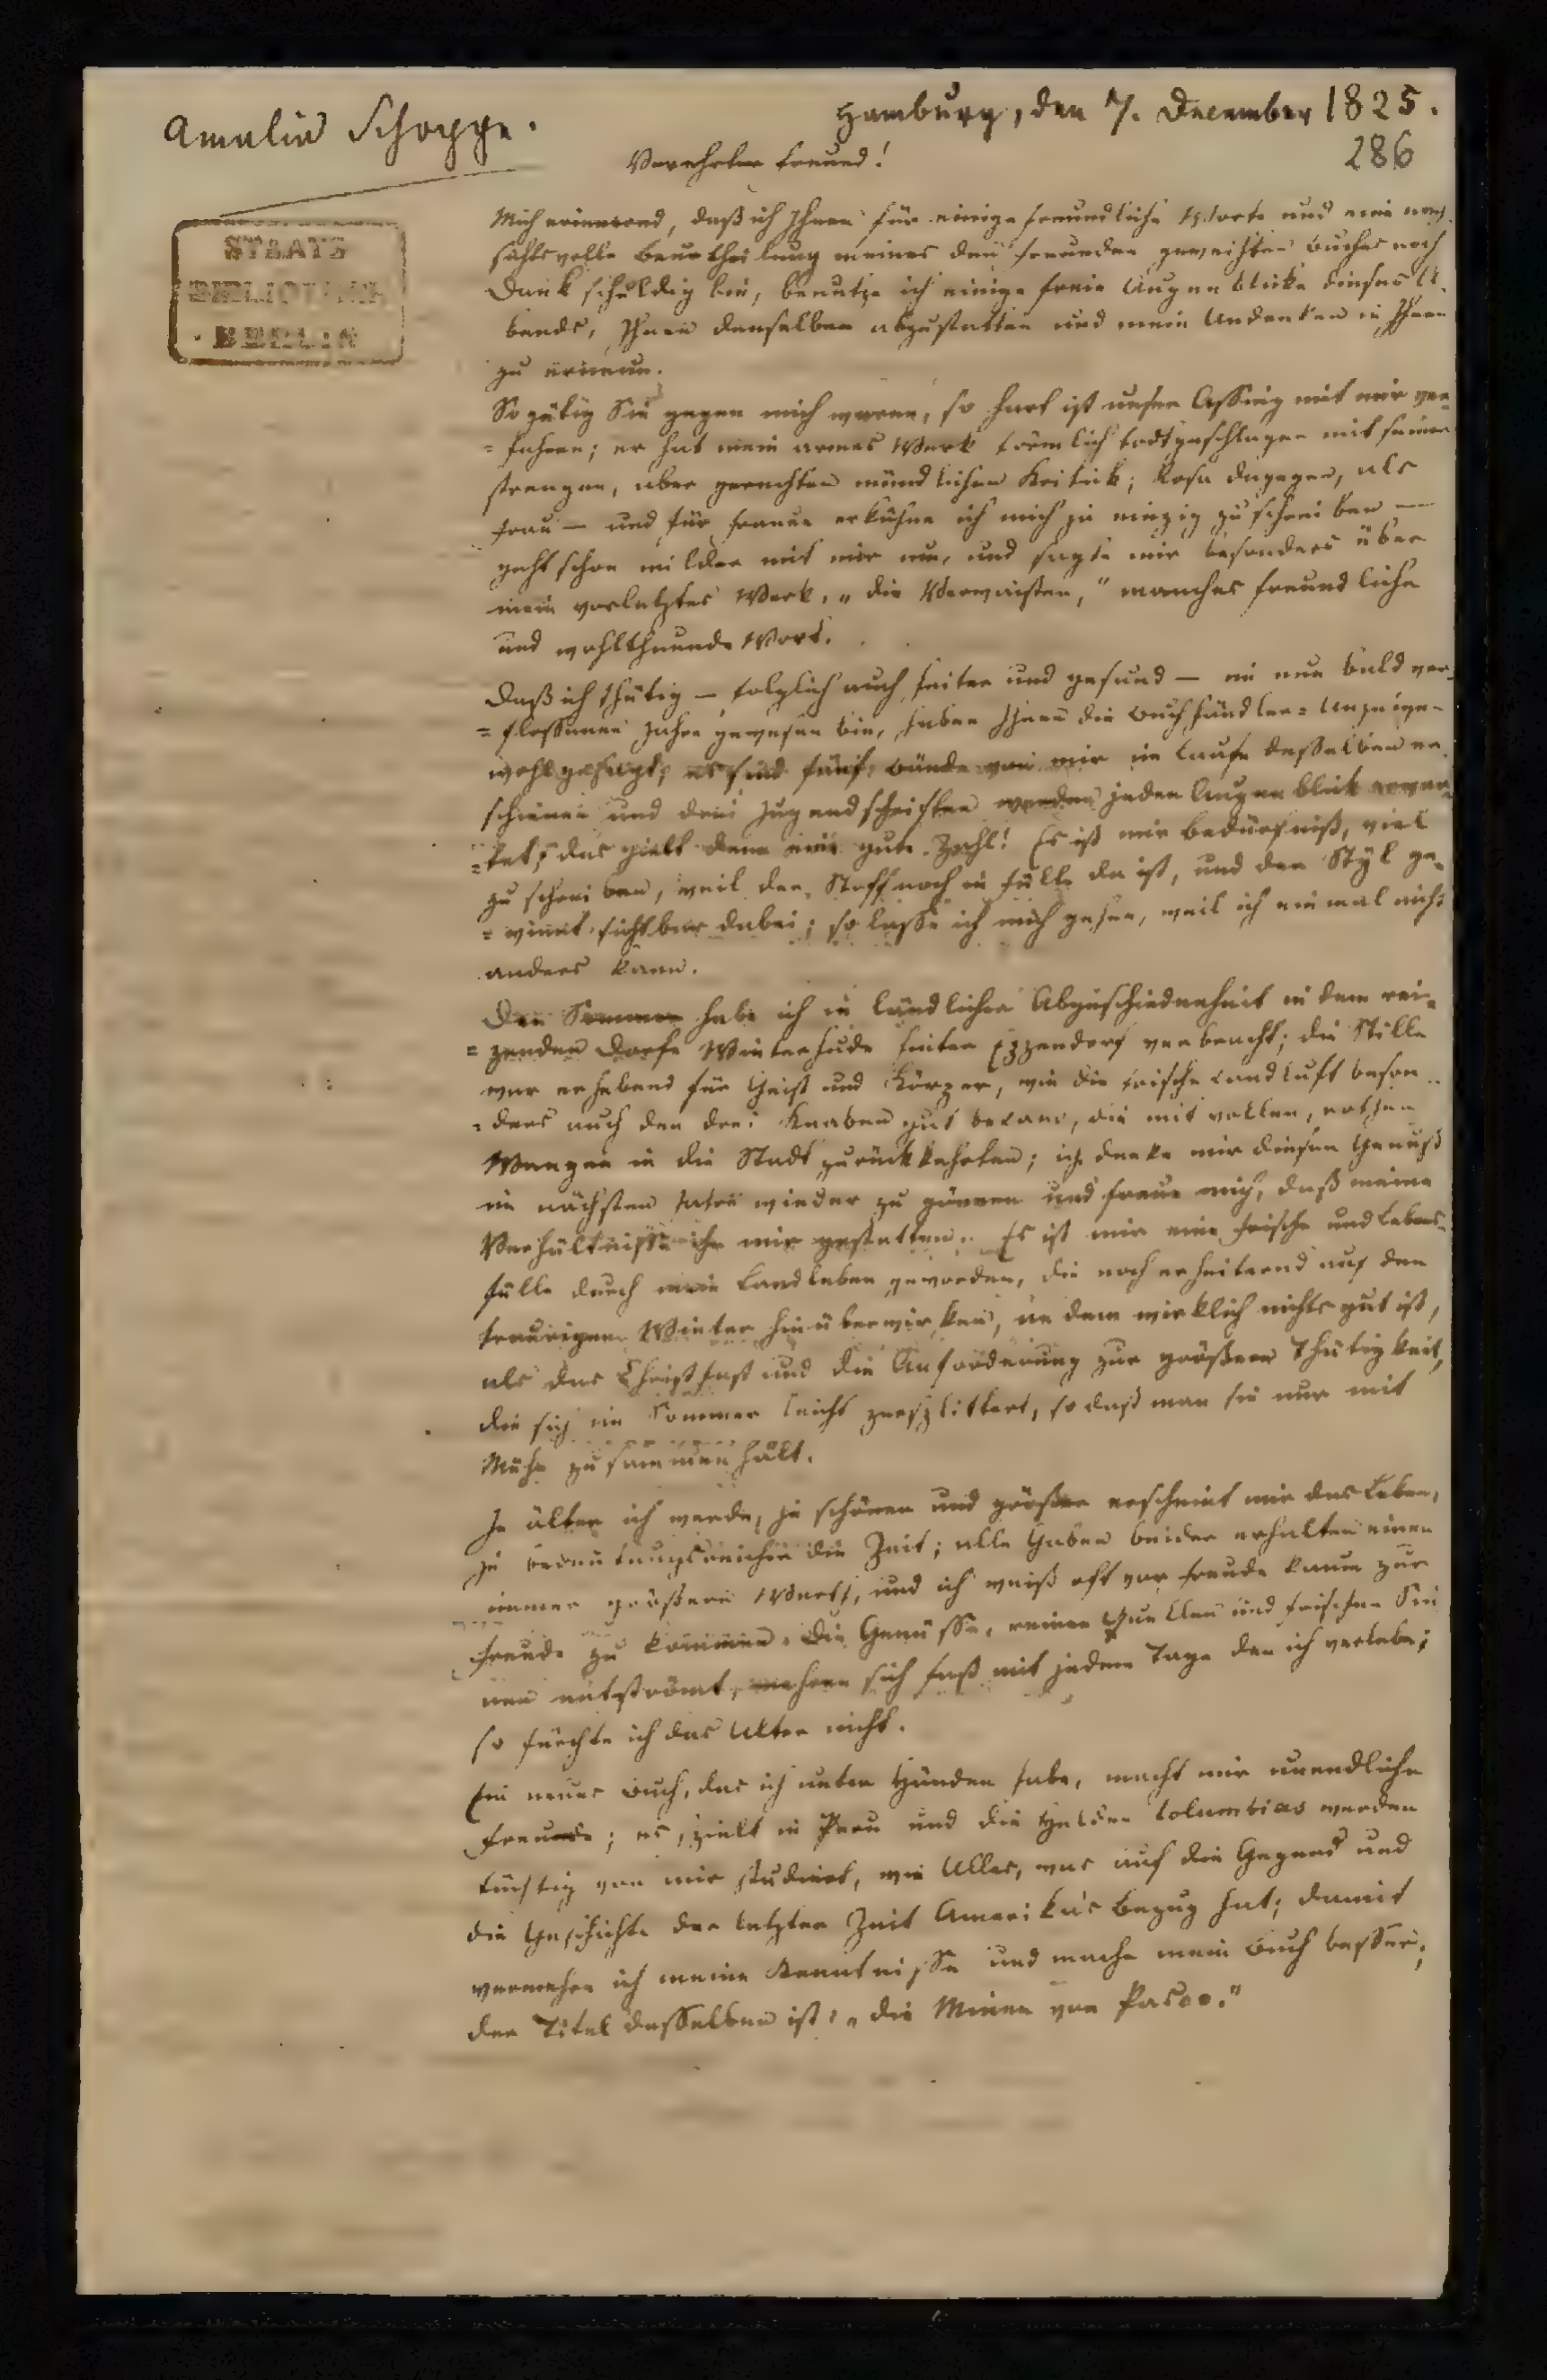 Amalia Schoppe.
Hamburg, den 7. December 1825.
286
Verehrter Freund!
STAATS
BIBLIOTHEK
BERLIN
Mich erinnernd, daß ich Ihnen für einige freundliche Worte und eine nach-
sichtsvolle Beurtheilung meines den Freunden geweihten Buches noch
Dank schuldig bin, benutze ich einige freie Augenblicke dieses A-
bends, Ihnen denselben abzustatten und mein Andenken in Ihnen
zu erneuen.
So gütig Sie gegen mich waren, so hart ist unser Assing mit mir ver-
=fahren; er hat mein armes Werk förmlich todtgeschlagen mit seiner
strengen, aber gerechten mündlichen Kritik; Rosa dagegen, als
Frau — und für Frauen erkühne ich mich ja einzig zu schreiben —
geht schon milder mit mir um, und sagte mir besonders über
mein vorletztes Werk, „die Verwaisten," manches freundliche
und wohlthuende Wort.
Daß ich thätig — folglich auch heiter und gesund — im nun bald ver-
=flossenen Jahre gewesen bin, haben Ihnen die Buchhändler=Anzeigen
wohl gesagt; es sind fünf Bände von mir im Laufe desselben er-
schienen und drei Jugendschriften werden jeden Augenblick erwar-
=tet; das giebt denn eine gute Zahl! Es ist mir Bedürfniß, viel
zu schreiben, weil der Stoff noch in Fülle da ist, und der Styl ge-
=winnt sichtbar dabei; so lasse ich mich gehen, weil ich einmal nicht
anders kann.
Den Sommer habe ich in ländlicher Abgeschiedenheit in dem rei-
=zenden Dorfe Winterhude hinter Eppendorf verbracht; die Stille
war erhebend für Geist und Körper, wie die frische Landluft beson-
=ders auch den drei Knaben gut bekam, die mit vollen, rothen
Wangen in die Stadt zurückkehrten; ich denke mir diesen Genuß
im nächsten Jahre wieder zu gönnen und freue mich, daß meine
Verhältnisse ihn mir gestatten. Es ist mir eine Frische und Lebens-
fülle durch mein Landleben geworden, die noch erheiternd auf den
traurigen Winter hinüberwirken, an dem wirklich nichts gut ist,
als das Christfest und die Aufforderung zur größern Thätigkeit,
die sich im Sommer leicht zersplittert, so daß man sie nur mit
Mühe zusammenhält.
Je älter ich werde, je schöner und größer erscheint mir das Leben,
je bedeutungsreicher die Zeit; alle Gaben beider erhalten einen
immer größeren Werth, und ich weiß oft vor Freude kaum zur
Freude zu kommen. Die Genüsse, reinen Quellen und frischen Sin-
nen entströmt, mehren sich fast mit jedem Tage den ich verlebe;
so fürchte ich das Alter nicht.
Ein neues Buch, das ich unter Händen habe, macht mir unendliche
Freude; es spielt in Peru und die Helden Columbias werden
tüchtig von mir studiert, wie Alles, was auf die Gegend und
die Geschichte der letzten Zeit Amerika's Bezug hat; damit
vermehre ich meine Kenntnisse und mache mein Buch besser;
der Titel desselben ist: „die Minen von Pasco."